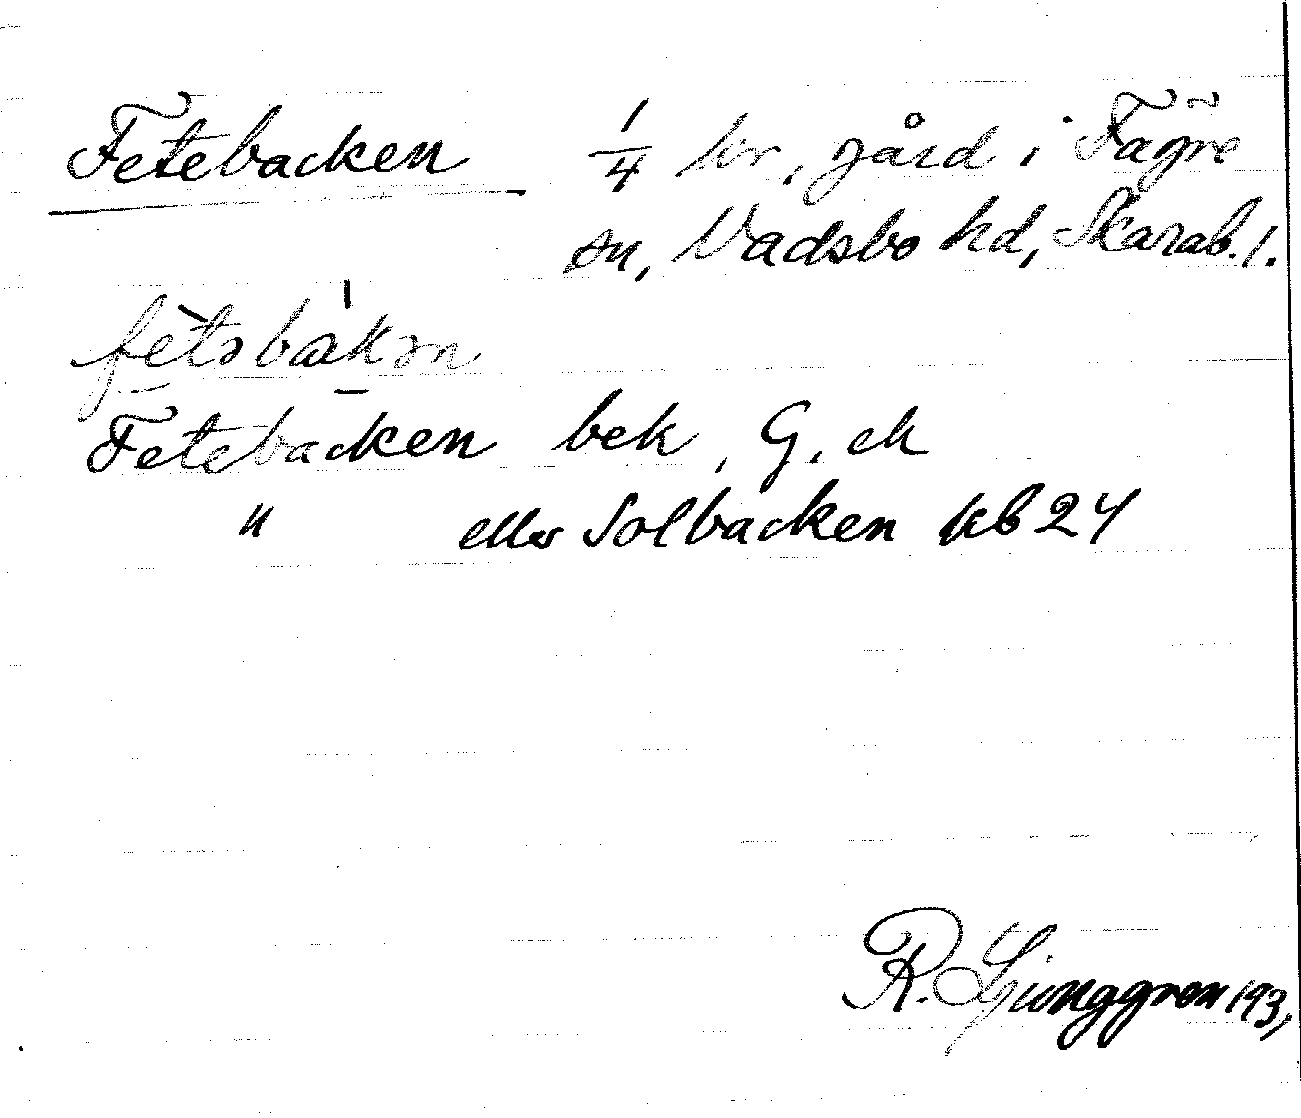 Fetebacken 1/4 kr, gård i Fägre
sn, Vadsbo hd, Skarab. l.
fètəbákən
Fetebacken bek, G, ek
" eller Solbacken kb 24
R. Ljunggren 193